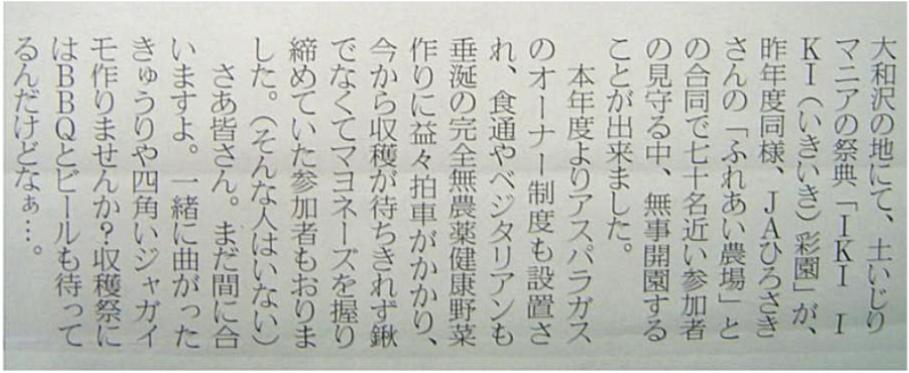 大和沢の地にて、土いじり
マニアの祭典「IKI I
KI(いきいき)彩園」が、
昨年度同様、JAひろさき
さんの「ふれあい農場」と
の合同で七十名近い参加者
の見守る中、無事開園する
ことが出来ました。
本年度よりアスパラガス
のオーナー制度も設置さ
れ、食通やベジタリアンも
垂涎の完全無農薬健康野菜
作りに益々拍車がかかり、
今から収穫が待ちきれず鍬
でなくてマヨネーズを握り
締めていた参加者もおりま
した。(そんな人はいない)
さあ皆さん。まだ間に合
いますよ。一緒に曲がった
きゅうりや四角いジャガイ
モ作りませんか?収穫祭に
はBBQとビールも待って
るんだけどなぁ…。